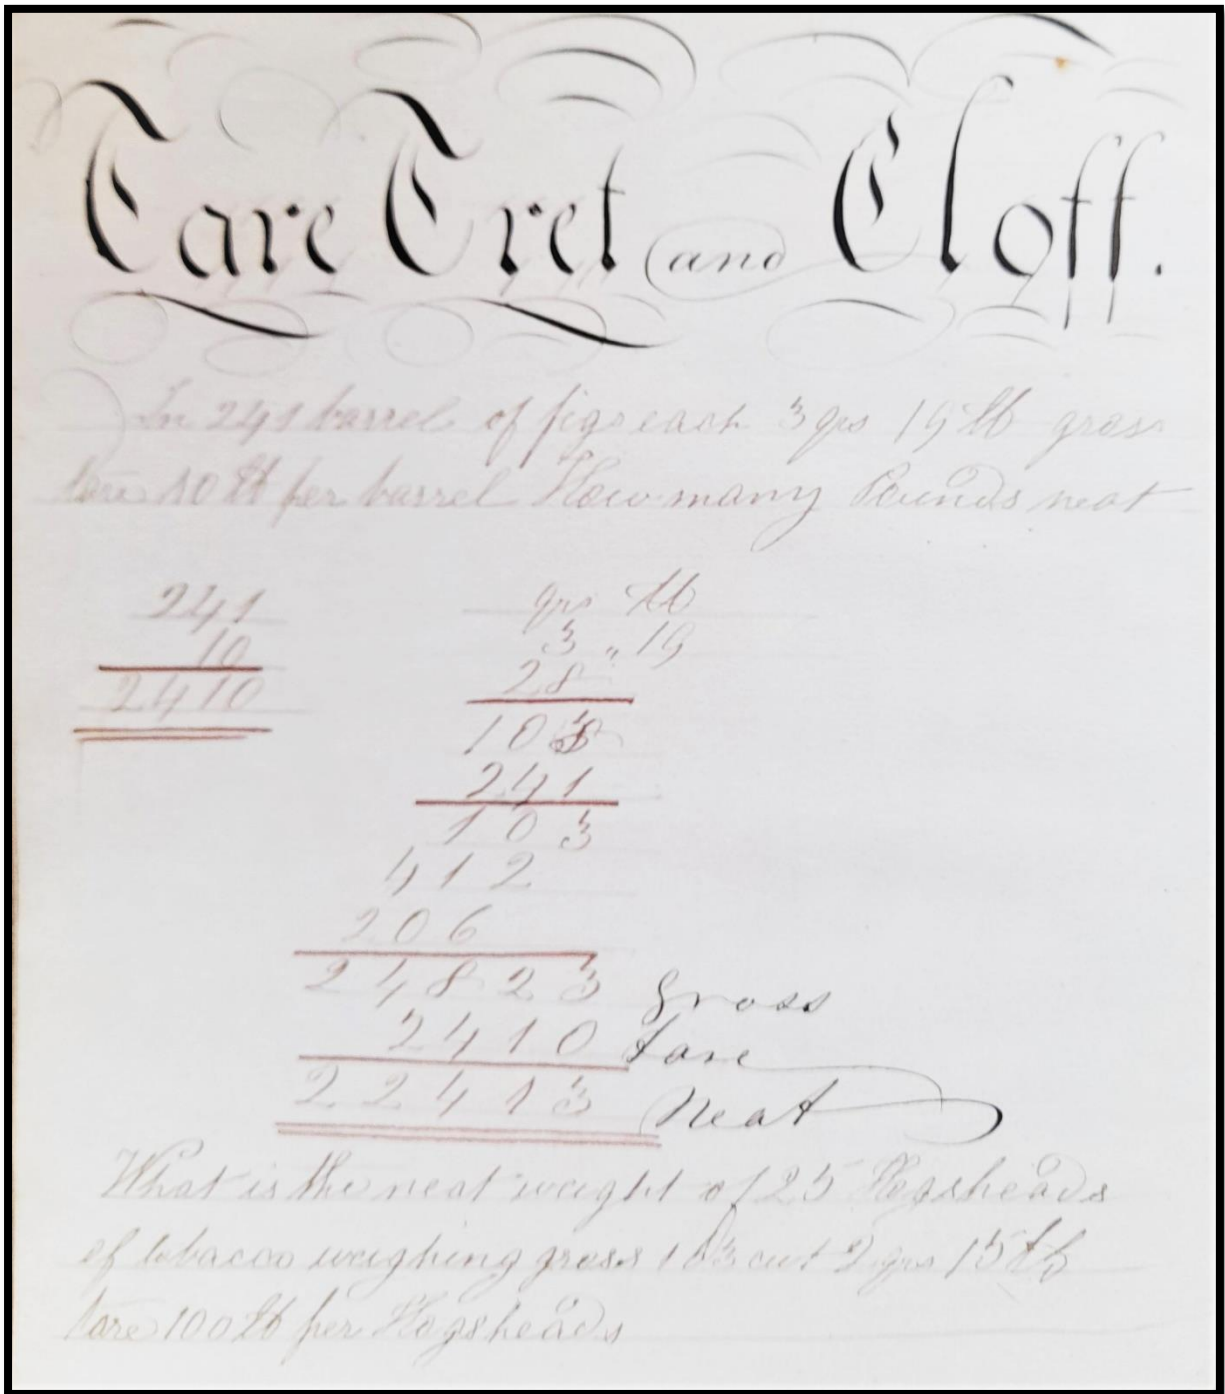 Tare Tret and Cloff.
In 241 barrel of figs each 3 qrs 19 lb gross
tare 10 lb per barrel How many Pounds neat
241
10
2410
qrs lb
3 " 19
28
103
241
103
412
206
24823 gross
2410 tare
22413 Neat
What is the neat weight of 25 Hogsheads
of tobacco weighing gross cwt 2 qrs 15 lb
tare 100 lb per Hogsheads